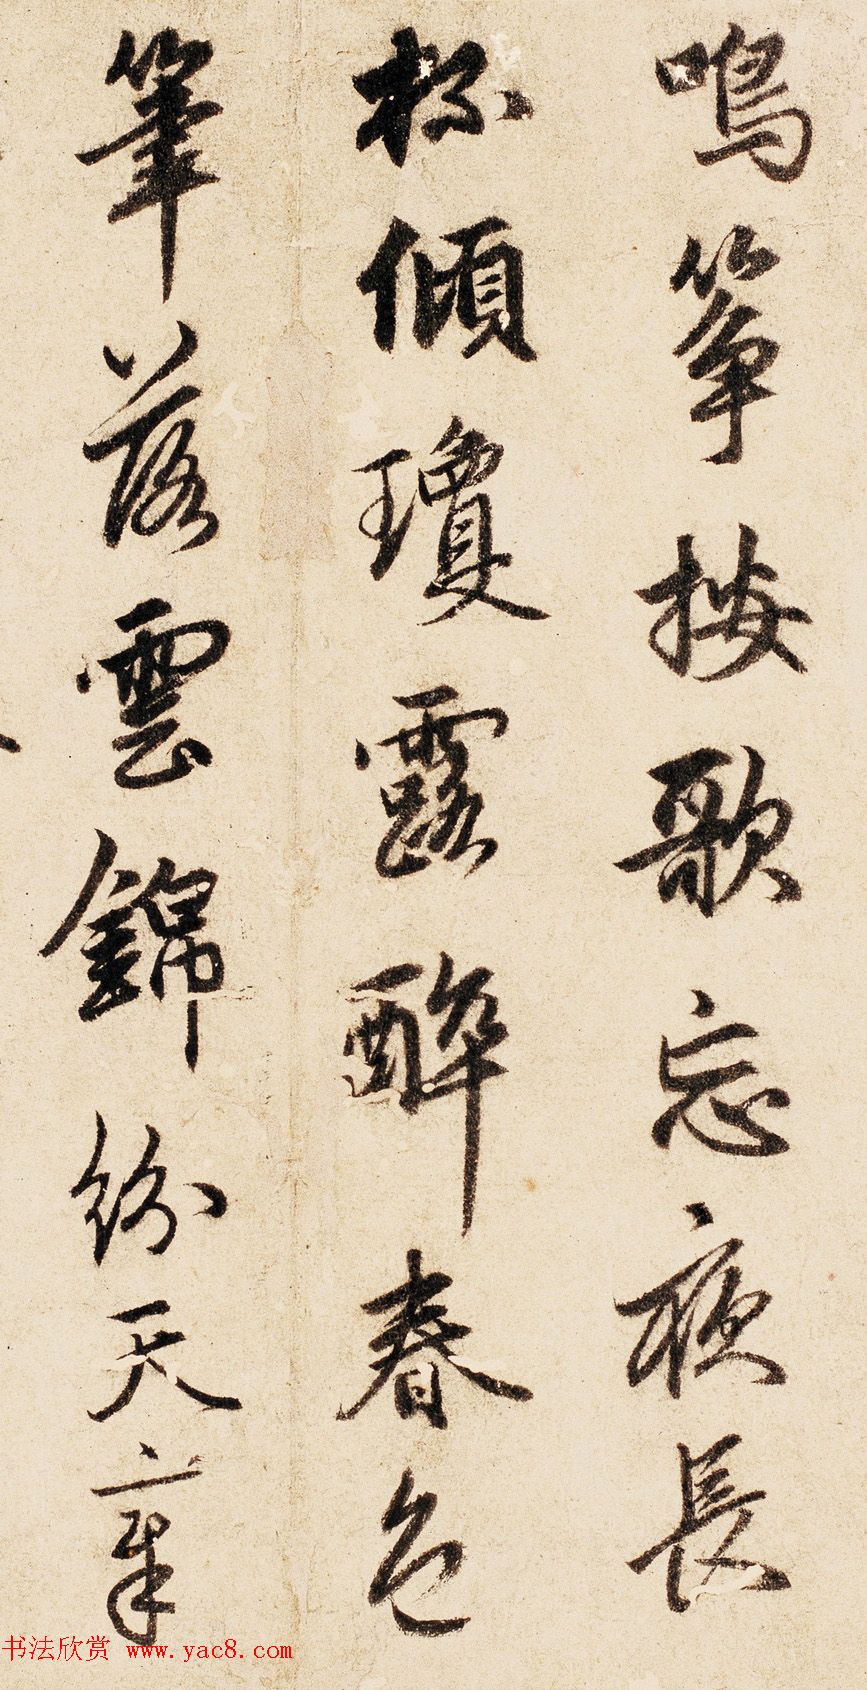 鳴箏按歌忘夜長
杯傾瓊露醉春色
筆落雲錦紛天章
书法欣赏 www.yac8.com